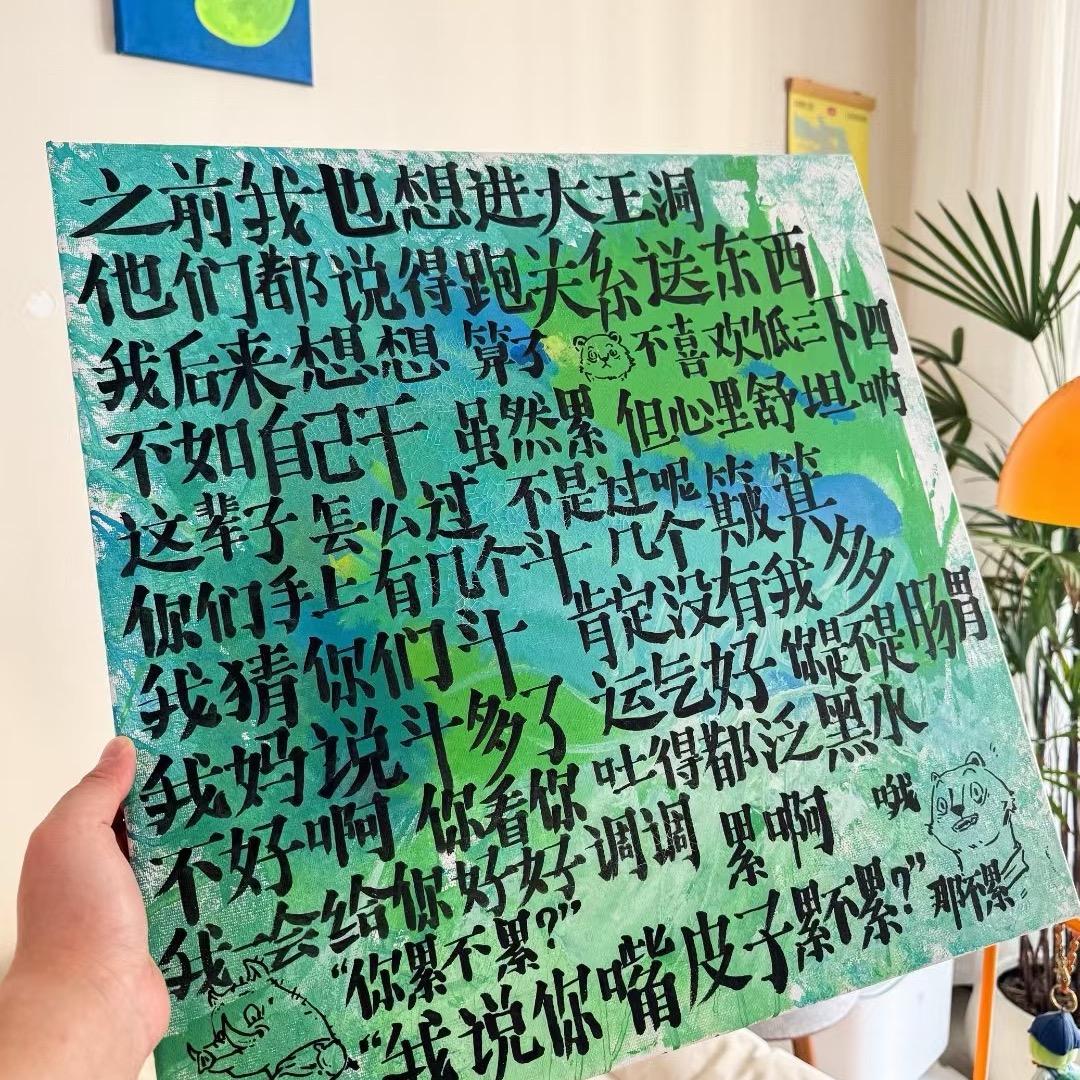 之前我也想进大王洞
他们都说得跑关系送东西
我后来想想 算了 不喜欢低三下四
不如自己干 虽然累 但心里舒坦呐
这辈子怎么过 不是过呢
你们手上有几个斗 几个簸箕
我猜你们斗 肯定没有我多
我妈说斗多了 运气好 你是不是肠胃
不好啊 你看你 吐得都泛黑水
我一会给你好好调调 累啊 哦
“你累不累?”
“我说你嘴皮子累不累?” 那不累